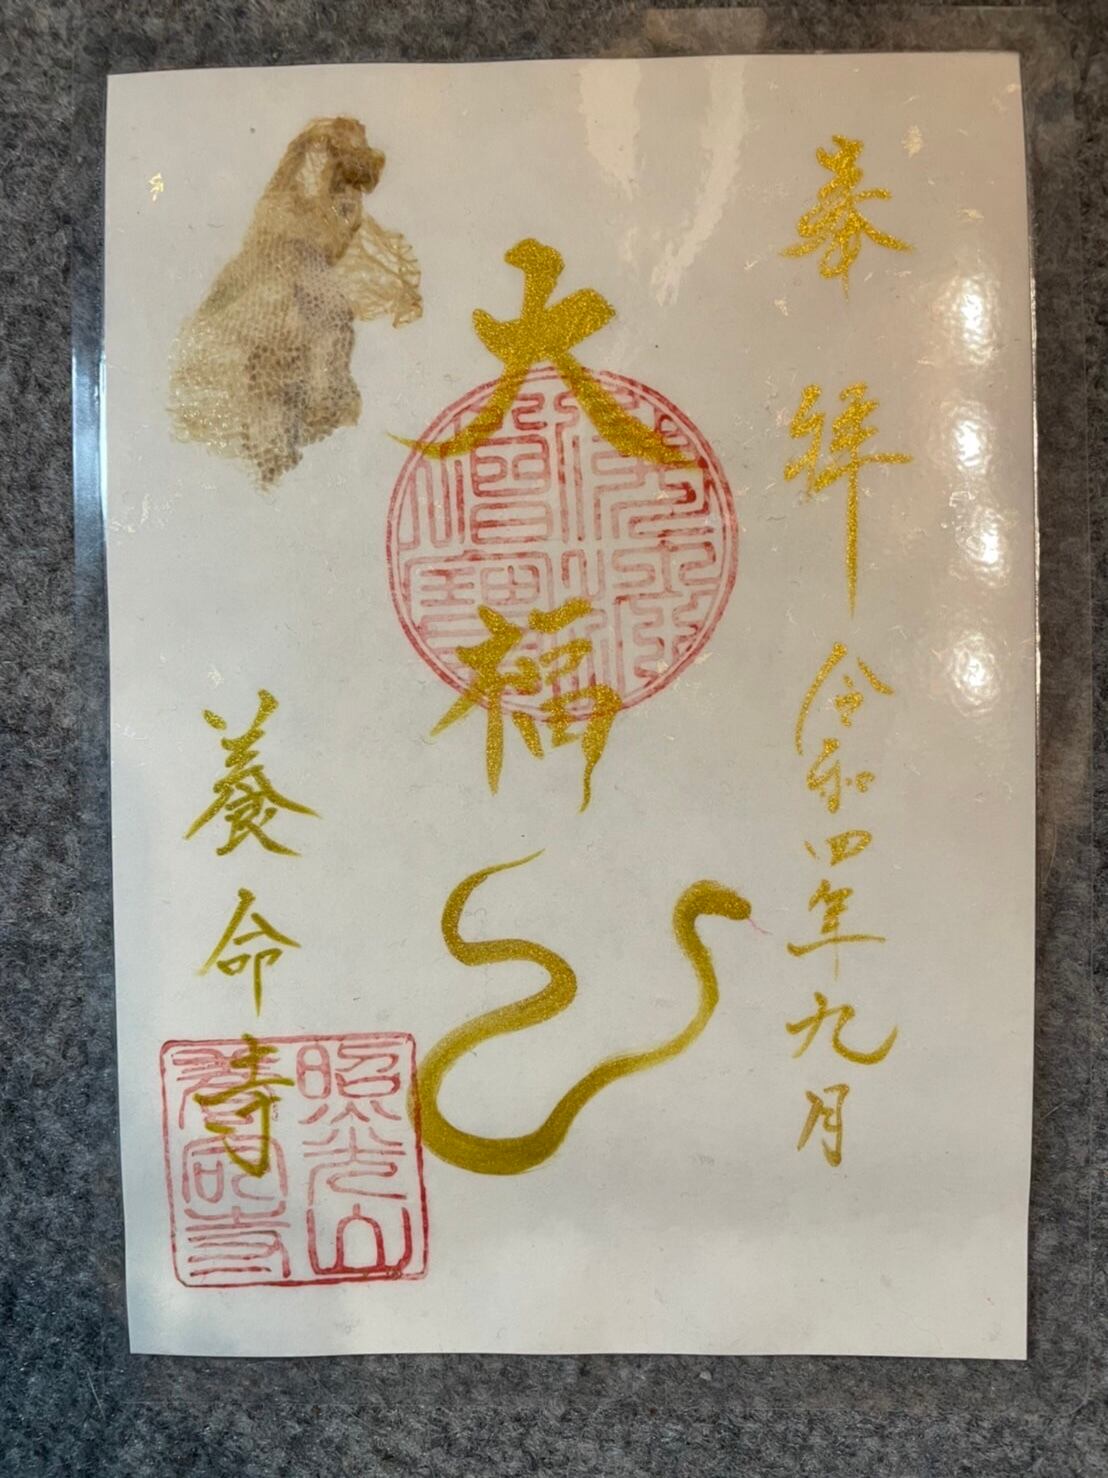 奉拝
令和四年九月
大福
養命寺
照光山
養命寺